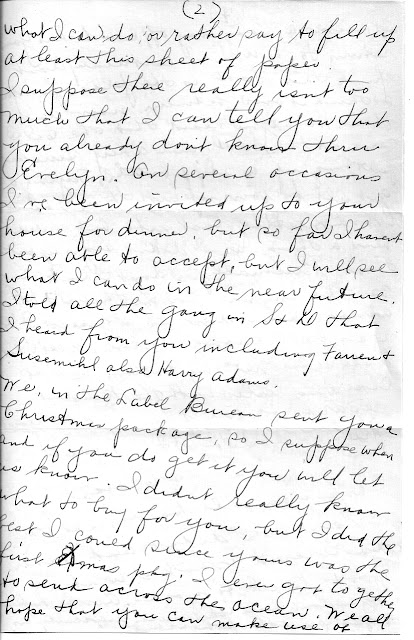 (2)
what I can do, or rather say to fill up
at least this sheet of paper.
I suppose there really isn't too
much that I can tell you that
you already don't know thru
Evelyn. On several occasions
I've been invited up to your
house for dinner, but so far I havent
been able to accept, but I will see
what I can do in the near future.
I told all the gang in St D that
I heard from you including Farrent
Susemihl also Harry Adams.
We, in the Label Bureau sent you a
Christmas package, so I suppose when
and if you do get it you will let
us know. I didnt really know
what to buy for you, but I did the
best I could since yours was the
first Xmas pkg. I ever got together
to send across the ocean. We all
hope that you can make use of